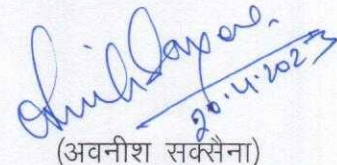 20.4.2023
(अवनीश सक्सैना)